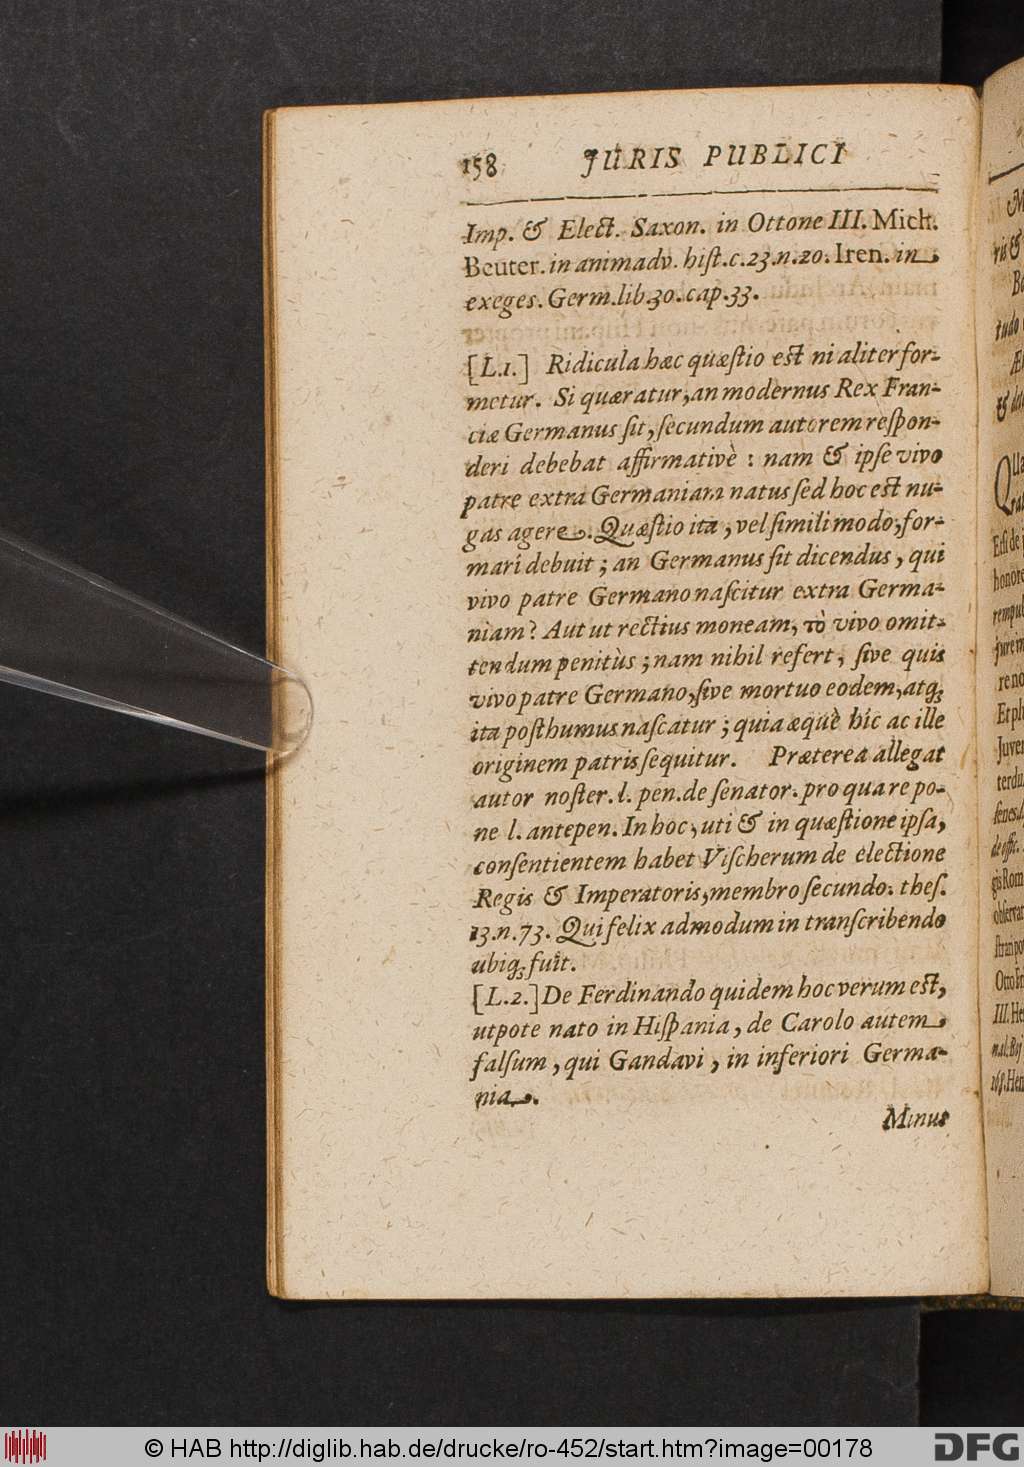 158 JURIS PUBLICI
Imp. & Elect. Saxon. in Ottone III. Mich.
Beuter. in animadv. hiſt. c. 23. n. 20. Iren. in
exeges. Germ. lib. 30. cap. 33.
[L.1.] Ridicula hæc quæſtio est ni aliter for-
metur. Si quæratur, an modernus Rex Fran-
ciæ Germanus ſit, ſecundum autorem reſpon-
deri debebat affirmativè : nam & ipſe vivo
patre extra Germaniam natus ſed hoc est nu-
gas agere. Quæſtio ita, vel ſimili modo, for-
mari debuit ; an Germanus ſit dicendus, qui
vivo patre Germano naſcitur extra Germa-
niam? Aut ut rectius moneam, τὸ vivo omit-
tendum penitùs ; nam nihil refert, ſive quis
vivo patre Germano, ſive mortuo eodem, atq;
ita poſthumus naſcatur ; quia æquè hic ac ille
originem patris ſequitur. Præterea allegat
autor noſter. l. pen. de ſenator. pro qua repo-
ne l. antepen. In hoc, uti & in quæſtione ipſa,
conſentientem habet Viſcherum de electione
Regis & Imperatoris, membro ſecundo. theſ.
13. n. 73. Qui felix admodum in tranſcribendo
ubiq; fuit.
[L.2.] De Ferdinando quidem hoc verum est,
utpote nato in Hiſpania, de Carolo autem
falſum, qui Gandavi, in inferiori Germa-
nia.
Minus
ris &
tudo
© HAB http://diglib.hab.de/drucke/ro-452/start.htm?image=00178
DFG